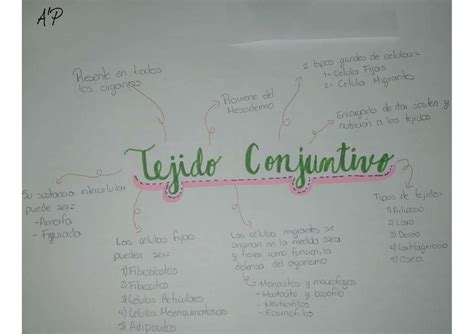 A'P
Presente en todos
los organos
Proviene del
Mesodermo
2 tipos grandes de celulas=
1= Celula Fijas
2= Celula Migrantes
Encargado de dar sosten y
nutrición a los tejidos
Tejido Conjuntivo
Su sustancia intercelular
puede ser:
- Amorfa
- Figurada
Las células fijas
pueden ser:
1) Fibroblastos
2) Fibrocitos
3) Celulas Reticulares
4) Celulas Mesenquimaticas
5) Adipocitos
Las células migrantes se
originan en la medula osea
y tienen como función, la
defensa del organismo
- Monocitos y macrofagos
- Mastocito y basofilo
- Neutrofilos
- Eosinofilo
Tipos de tejido:
1) Adiposo
2) Laxo
3) Denso
4) Cartilaginoso
5) Oseo